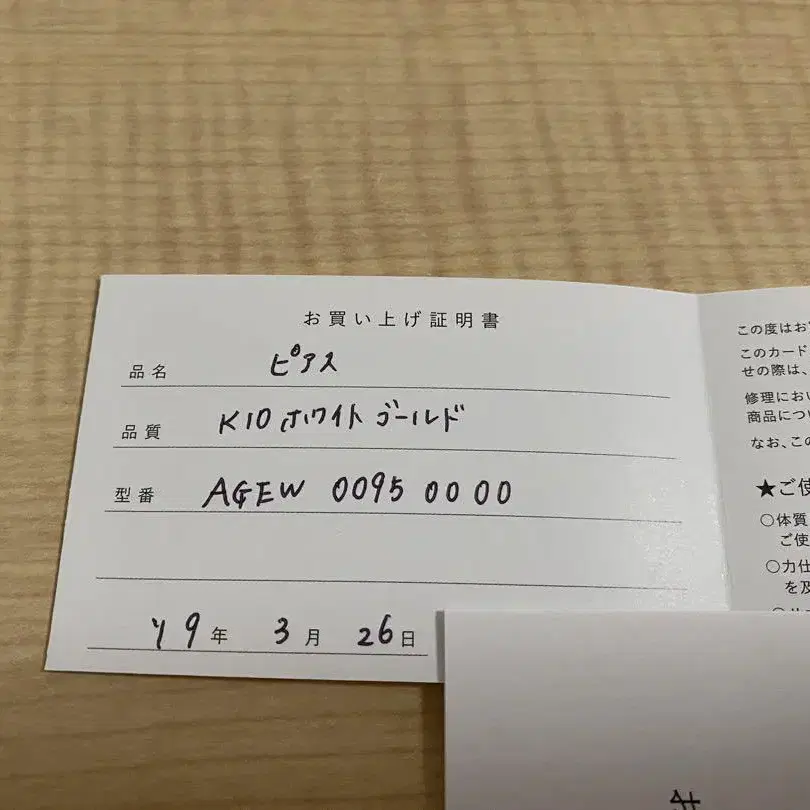 お買い上げ証明書
品名 ピアス
品質 K10ホワイトゴールド
型番 AGEW 0095 0000
'19年 3月 26日
この度はお
このカード
せの際は、
修理におい
商品につ
なお、この
★ご使
○体質
ご使
○力仕
を及